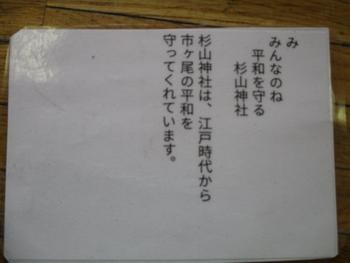 み
みんなのね
平和を守る
杉山神社
杉山神社は、江戸時代から
市ヶ尾の平和を
守ってくれています。